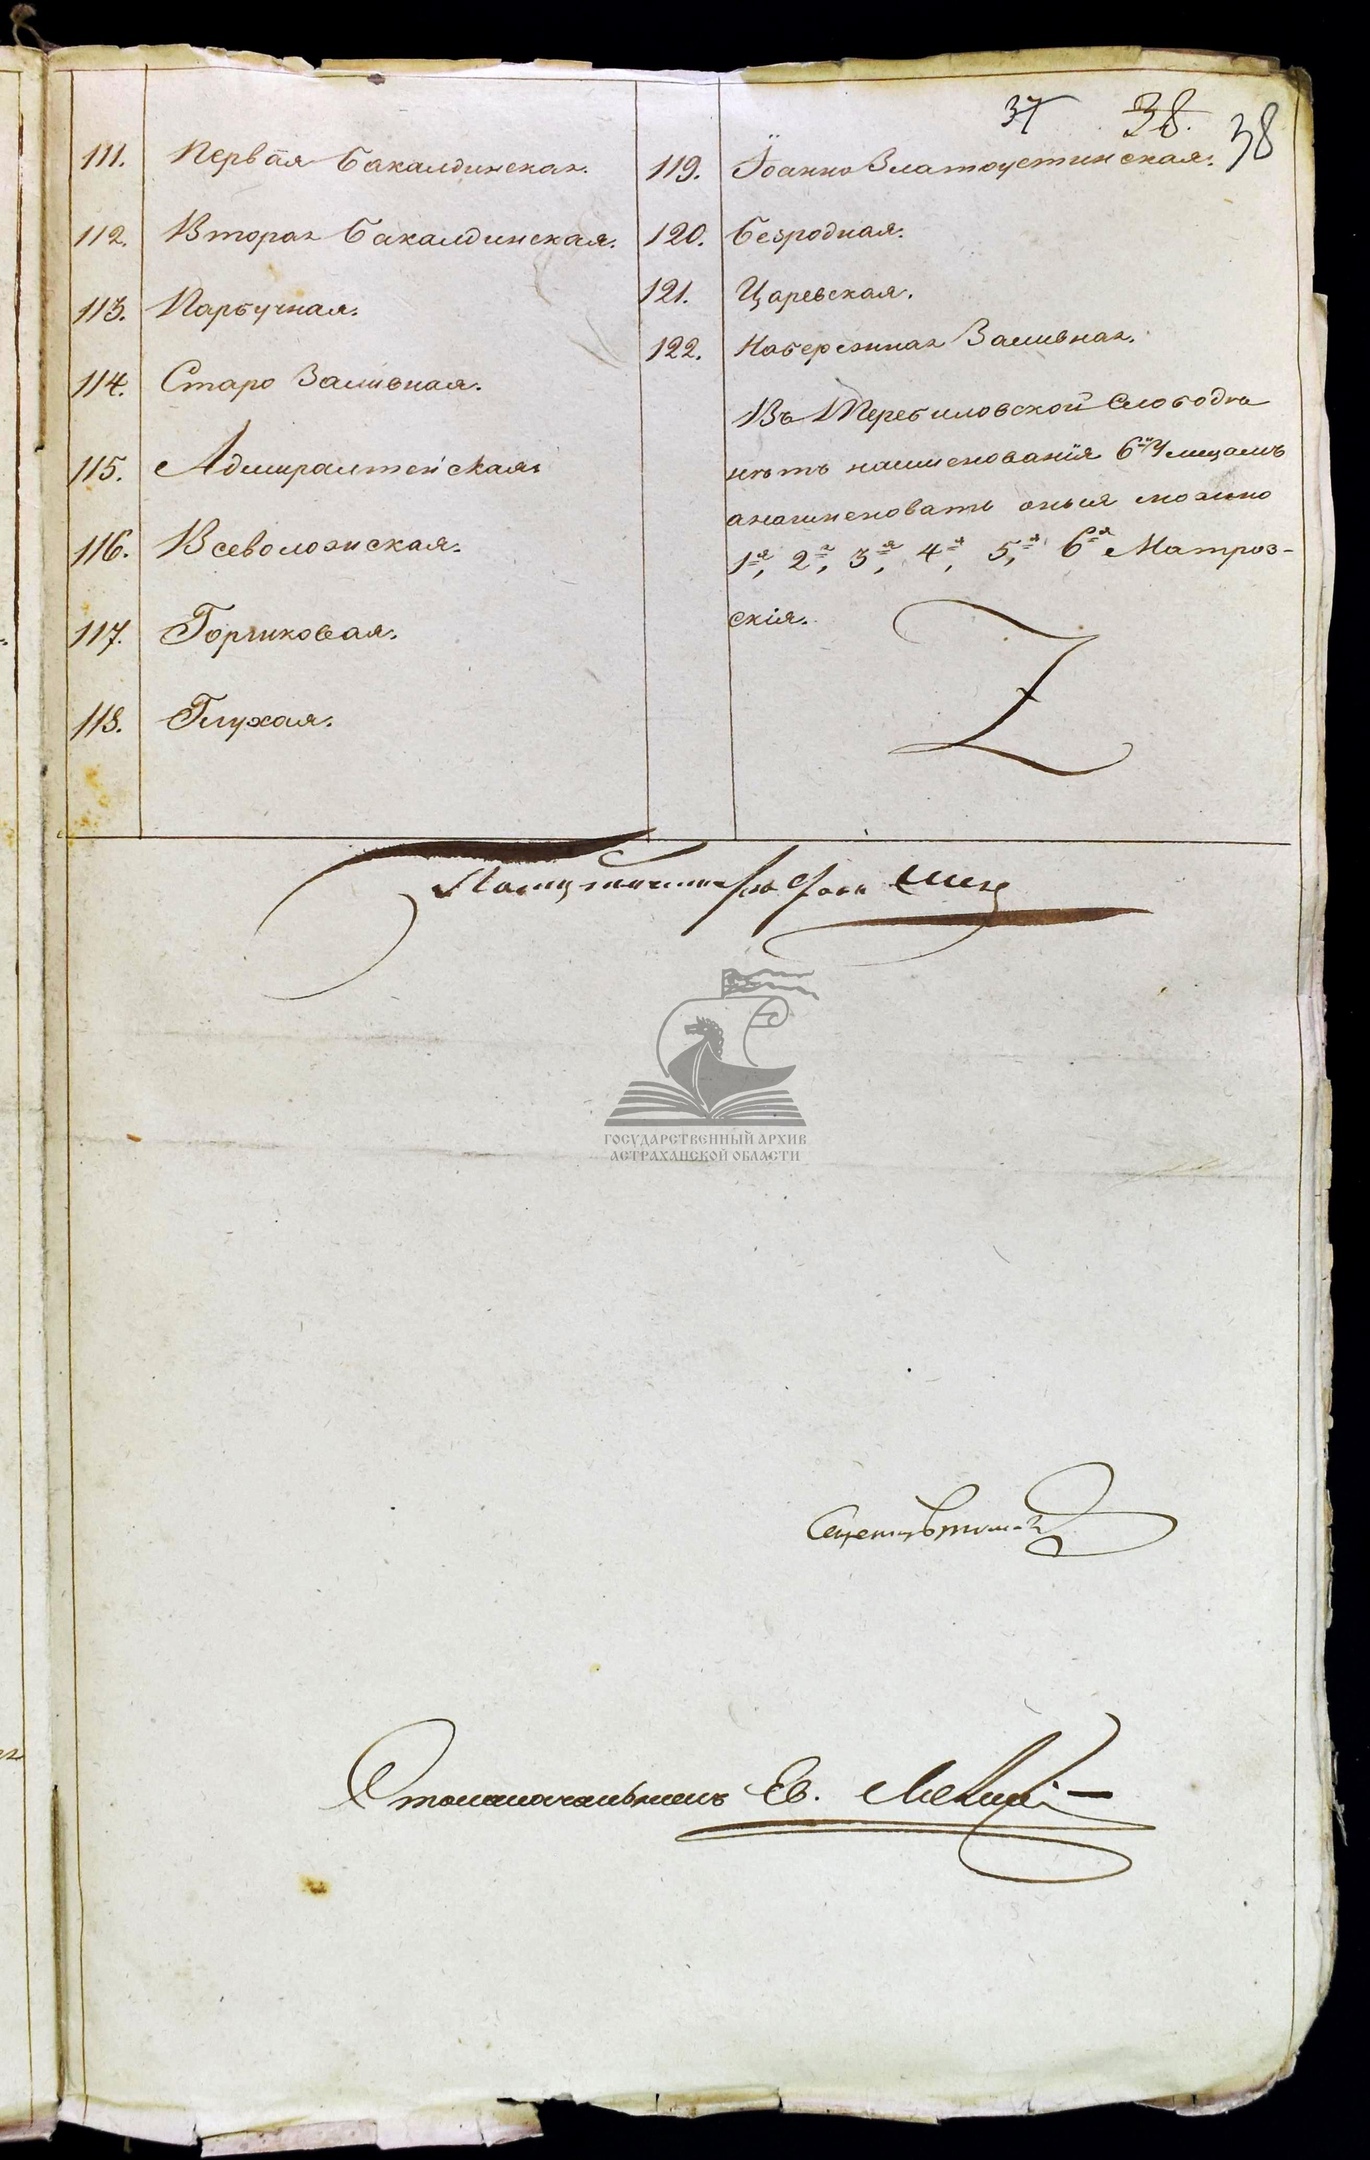 37 38. 38
111. Первая Бакалдинская.
112. Вторая Бакалдинская.
113. Парбучная.
114. Старо Заливная.
115. Адмиралтейская
116. Всеволожская.
117. Горчиковая.
118. Глухая.
119. Іоанно Златоустинская.
120. Безродная.
121. Царевская.
122. Набережная Заливная.
Въ Теребиловской Слободѣ
нѣтъ наименованія 6ти Улицамъ
анаименовать оныя можно
1я, 2я, 3я, 4я, 5я, 6я Матроз-
скія.
ГОСУДАРСТВЕННЫЙ АРХИВ
АСТРАХАНСКОЙ ОБЛАСТИ
Столоначальникъ Ев.